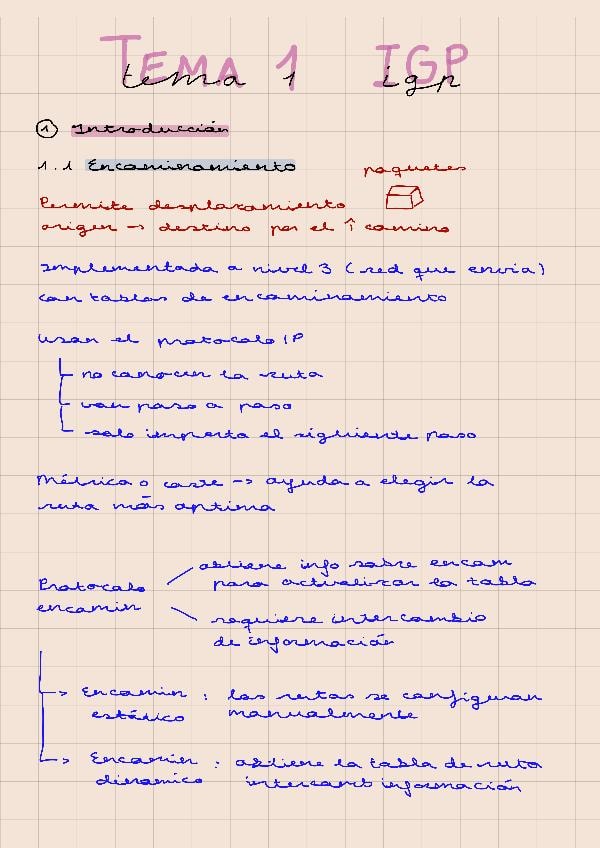 TEMA 1 IGP
tema 1 igp
① Introducción
1.1 Encaminamiento
paquetes
Permite desplazamiento
origen → destino por el ↑ camino
Implementada a nivel 3 (red que envia)
con tablas de encaminamiento
Usan el protocolo IP
no conocen la ruta
van paso a paso
solo importa el siguiente paso
Métrica o coste → ayuda a elegir la
ruta más optima
Protocolo
encamin
obtiene info sobre encam
para actualizar la tabla
requiere intercambio
de información
→ Encamin : las rutas se configuran
estático manualmente
→ Encamin : obtiene la tabla de ruta
dinamico intercamb información